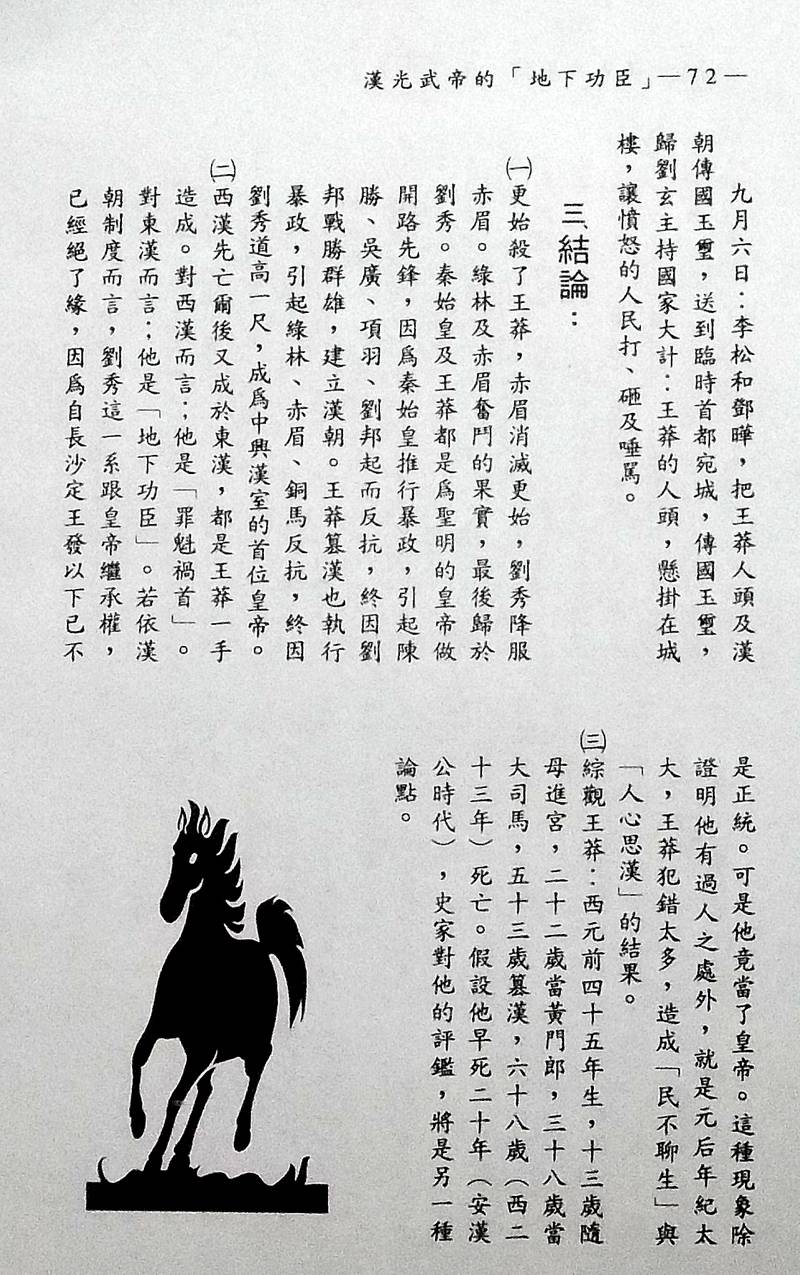 漢光武帝的「地下功臣」—72—
九月六日：李松和鄧曄，把王莽人頭及漢
朝傳國玉璽，送到臨時首都宛城，傳國玉璽，
歸劉玄主持國家大計：王莽的人頭，懸掛在城
樓，讓憤怒的人民打、砸及唾罵。
三、結論：
㈠更始殺了王莽，赤眉消滅更始，劉秀降服
赤眉。綠林及赤眉奮鬥的果實，最後歸於
劉秀。秦始皇及王莽都是為聖明的皇帝做
開路先鋒，因為秦始皇推行暴政，引起陳
勝、吳廣、項羽、劉邦起而反抗，終因劉
邦戰勝群雄，建立漢朝。王莽篡漢也執行
暴政，引起綠林、赤眉、銅馬反抗，終因
劉秀道高一尺，成為中興漢室的首位皇帝。
㈡西漢先亡爾後又成於東漢，都是王莽一手
造成。對西漢而言；他是「罪魁禍首」。
對東漢而言；他是「地下功臣」。若依漢
朝制度而言，劉秀這一系跟皇帝繼承權，
已經絕了緣，因為自長沙定王發以下已不
是正統。可是他竟當了皇帝。這種現象除
證明他有過人之處外，就是元后年紀太
大，王莽犯錯太多，造成「民不聊生」與
「人心思漢」的結果。
㈢綜觀王莽：西元前四十五年生，十三歲隨
母進宮，二十二歲當黃門郎，三十八歲當
大司馬，五十三歲篡漢，六十八歲（西二
十三年）死亡。假設他早死二十年（安漢
公時代），史家對他的評鑑，將是另一種
論點。